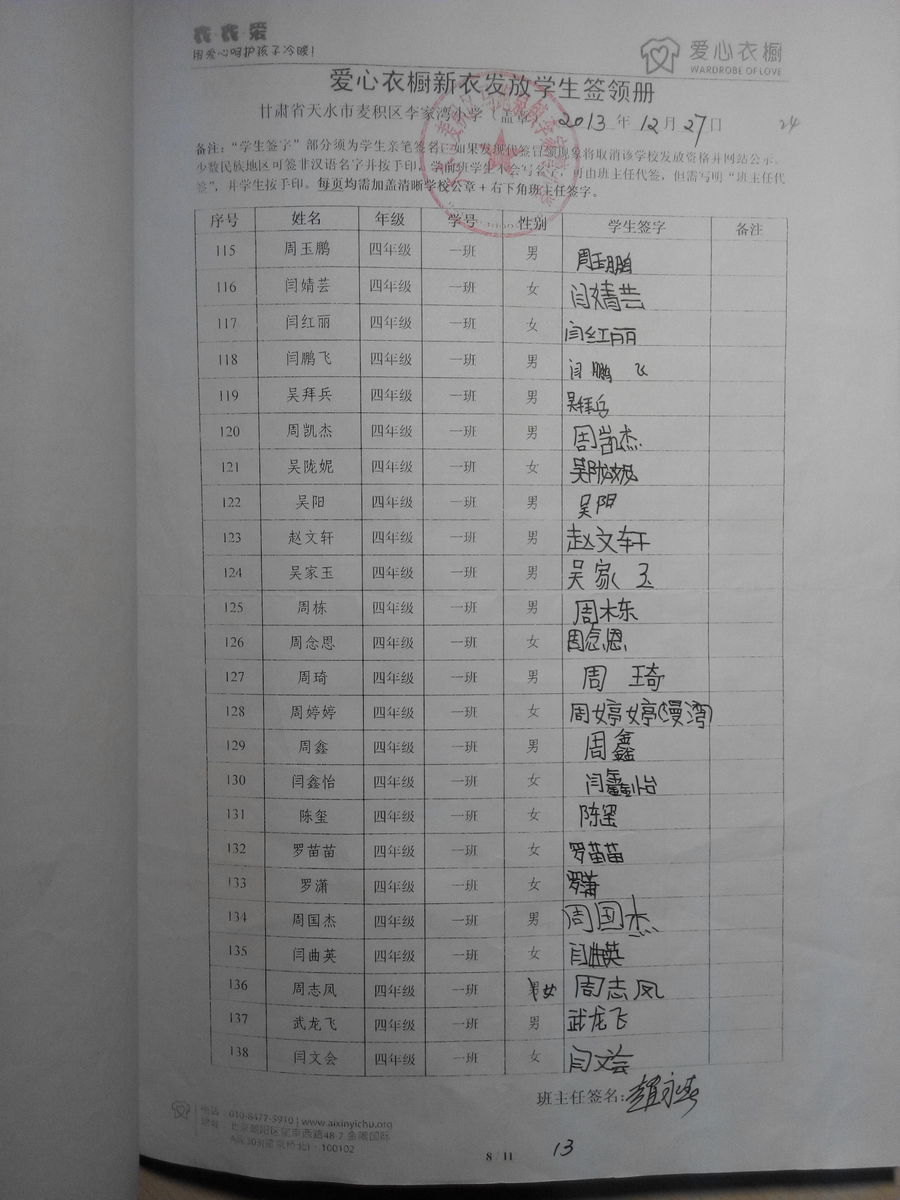 我·我·爱
用爱心呵护孩子冷暖!
爱心衣橱
WARDROBE OF LOVE
爱心衣橱新衣发放学生签领册
甘肃省天水市麦积区李家湾小学(盖章) 2013 年 12 月 27 日
24
备注:“学生签字”部分须为学生亲笔签名,如果发现代签冒领现象将取消该学校发放资格并网站公示。
少数民族地区可签非汉语名字并按手印。学前班学生不会写名字,可由班主任代签,但需写明“班主任代
签”,并学生按手印。每页均需加盖清晰学校公章+右下角班主任签字。
序号 姓名 年级 学号 性别 学生签字 备注
115 周玉鹏 四年级 一班 男 周玉鹏
116 闫婧芸 四年级 一班 女 闫婧芸
117 闫红丽 四年级 一班 女 闫红丽
118 闫鹏飞 四年级 一班 男 闫鹏飞
119 吴拜兵 四年级 一班 男 吴拜兵
120 周凯杰 四年级 一班 男 周凯杰
121 吴陇妮 四年级 一班 女 吴陇妮
122 吴阳 四年级 一班 男 吴阳
123 赵文轩 四年级 一班 男 赵文轩
124 吴家玉 四年级 一班 男 吴家玉
125 周栋 四年级 一班 男 周栋
126 周念恩 四年级 一班 女 周念恩
127 周琦 四年级 一班 男 周琦
128 周婷婷 四年级 一班 女 周婷婷(漫湾)
129 周鑫 四年级 一班 男 周鑫
130 闫鑫怡 四年级 一班 女 闫鑫怡
131 陈玺 四年级 一班 女 陈玺
132 罗苗苗 四年级 一班 女 罗苗苗
133 罗潇 四年级 一班 女 罗潇
134 周国杰 四年级 一班 男 周国杰
135 闫曲英 四年级 一班 女 闫曲英
136 周志凤 四年级 一班 男女 周志凤
137 武龙飞 四年级 一班 男 武龙飞
138 闫文会 四年级 一班 女 闫文会
班主任签名:赵永春
电话:010-8477-5910 | www.aixinyichu.org
地址:北京朝阳区望京西路48-7 金隅国际
100102
8 / 11
13